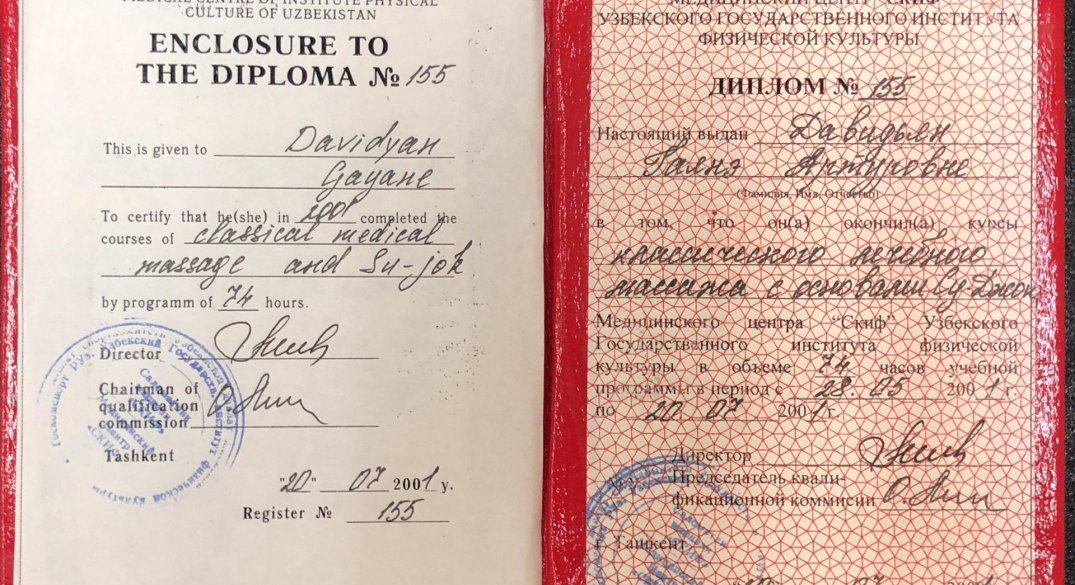 MEDICAL CENTRE OF INSTITUTE PHYSICAL
CULTURE OF UZBEKISTAN
ENCLOSURE TO
THE DIPLOMA № 155
This is given to Davidyan
Gayane
To certify that he(she) in 2001 completed the
courses of classical medical
massage and Su-jok
by programm of 74 hours.
Director
Chairman of
qualification
commission
Tashkent
"20" 07 2001 y.
Register № 155
МЕДИЦИНСКИЙ ЦЕНТР "СКИФ"
УЗБЕКСКОГО ГОСУДАРСТВЕННОГО ИНСТИТУТА
ФИЗИЧЕСКОЙ КУЛЬТУРЫ
ДИПЛОМ № 155
Настоящий выдан Давидьян
Гаянэ Артуровне
(Фамилия, Имя, Отчество)
в том, что он(а) окончил(а) курсы
классического лечебного
массажа с основами Су-Джок
Медицинского центра "Скиф" Узбекского
Государственного института физической
культуры в объеме 74 часов учебной
программы в период с 28.05 2001 г.
по 20.07 2001 г.
Директор
Председатель квали-
фикационной комиссии
г. Ташкент